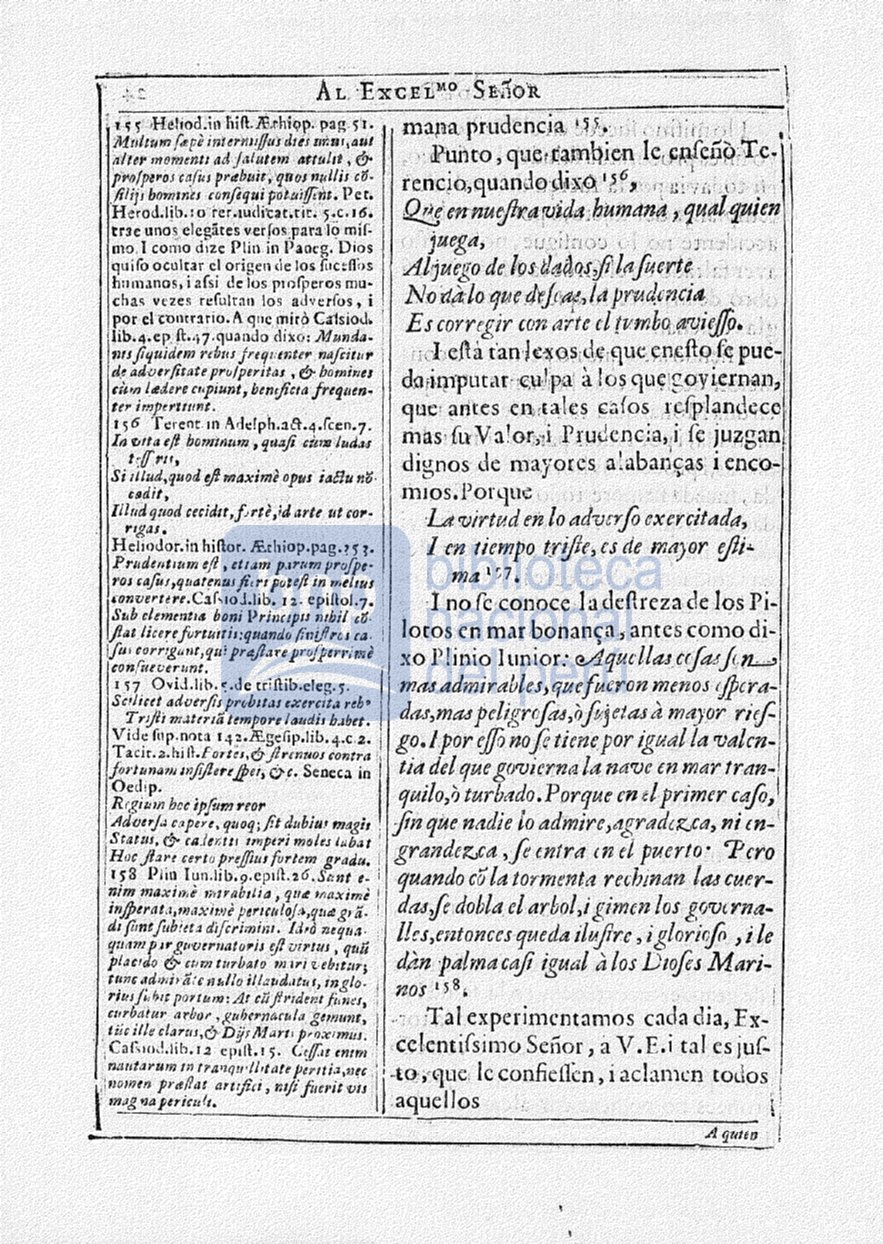 42
AL EXCEL.MO SEÑOR
155 Heliod.in hist. Æthiop. pag. 51.
Multum sæpè intermissus dies unus, aut
alter momenti ad salutem attulit, &
prosperos casus præbuit, quos nullis cõ-
silijs homines consequi potuissent. Pet.
Herod.lib.10 rer.iudicat.tit. 5.c.16.
trae unos elegãtes versos para lo mis-
mo. I como dize Plin in Paneg. Dios
quiso ocultar el origen de los sucessos
humanos, i assi de los prosperos mu-
chas vezes resultan los adversos, i
por el contrario. A que mirò Cassiod.
lib.4.epist.47.quando dixo: Munda-
nis siquidem rebus frequenter nascitur
de adversitate prosperitas, & homines
cùm lædere cupiunt, beneficta frequen-
ter impertiunt.
156 Terent in Adelph.act.4.scen.7.
In vita est hominum, quasi cùm ludas
tesseris,
Si illud, quod est maximè opus iactu nõ
cadit,
Illud quod cecidit, fortè, id arte ut cor-
rigas.
Heliodor.in histor. Æthiop.pag.253.
Prudentium est, etiam parum prospe-
ros casus, quatenus fieri potest in melius
convertere. Cassiod.lib. 12. epistol.7.
Sub clementia boni Principis nihil cõ-
stat licere fortuitis: quando sinistros ca-
sus corrigunt, qui præstare prosperrimè
consueverunt.
157 Ovid.lib.5.de tristib.eleg.5.
Scilicet adversis probitas exercita rebꝰ
Tristi materiã tempore laudis habet.
Vide sup.nota 142. Ægesip.lib.4.c.2.
Tacit.2.hist. Fortes, & strenuos contra
fortunam insistere spei, &c. Seneca in
Oedip.
Regium hoc ipsum reor
Adversa capere, quoq; sit dubius magis
Status, & cadentis imperi moles labat
Hoc stare certo pressius fortem gradu.
158 Plin Iun.lib.9.epist.26. Sunt e-
nim maximè mirabilia, quæ maximè
insperata, maximè periculosa, quæ grã-
di sunt subieta discrimini. Ideò nequa-
quam par guvernatoris est virtus, quũ
placido & cum turbato mari vehitur;
tunc admirãte nullo illaudatus, inglo-
rius subit portum: At cũ strident funes,
curbatur arbor, gubernacula gemunt,
tũc ille clarus, & Dijs Maris proximus.
Cassiod.lib.12 epist.15. Cessat enim
nautarum in tranquillitate peritia, nec
nomen præstat artifici, nisi fuerit vis
magna periculi.
mana prudencia 155.
Punto, que tambien le enseñò Te-
rencio, quando dixo 156,
Que en nuestra vida humana, qual quien
juega,
Al juego de los dados, si la suerte
No dà lo que deseas, la prudencia
Es corregir con arte el tumbo aviesso.
I està tan lexos de que en esto se pue-
da imputar culpa à los que goviernan,
que antes en tales casos resplandece
mas su Valor, i Prudencia, i se juzgan
dignos de mayores alabanças i enco-
mios. Porque
La virtud en lo adverso exercitada,
I en tiempo triste, es de mayor esti-
ma 157.
I no se conoce la destreza de los Pi-
lotos en mar bonança, antes como di-
xo Plinio Iunior: Aquellas cosas son
mas admirables, que fueron menos espera-
das, mas peligrosas, ò sujetas à mayor ries-
go. I por esso no se tiene por igual la valen-
tia del que govierna la nave en mar tran-
quilo, ò turbado. Porque en el primer caso,
sin que nadie lo admire, agradezca, ni en-
grandezca, se entra en el puerto. Pero
quando cõ la tormenta rechinan las cuer-
das, se dobla el arbol, i gimen los governa-
lles, entonces queda ilustre, i glorioso, i le
dàn palma casi igual à los Dioses Mari-
nos 158.
Tal experimentamos cada dia, Ex-
celentissimo Señor, a V.E. i tal es jus-
to, que le confiessen, i aclamen todos
aquellos
A quien
biblioteca
nacional
del perú